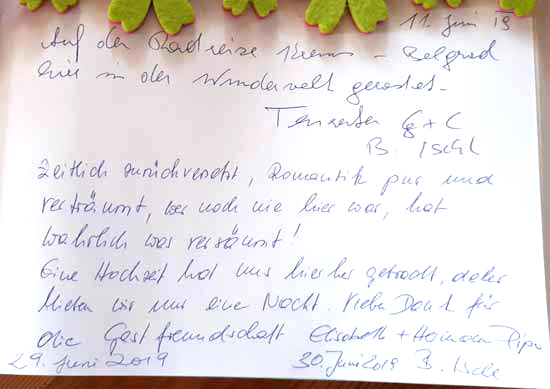 11. Juni 19
Auf der Radreize Krems – Belgrad
hier in der Wunderwelt gerastet.
G + C
B. Ischl
Zeitlich zurückversetzt, Romantik pur und
verträumt, wer noch nie hier war, hat
wahrlich was versäumt!
Eine Hochzeit hat uns hierher gebracht, daher
blieben wir nur eine Nacht. Vielen Dank für
die Gastfreundschaft Elisabeth + Hermann
29. Juni 2019 30. Juni 2019 B. Ischl